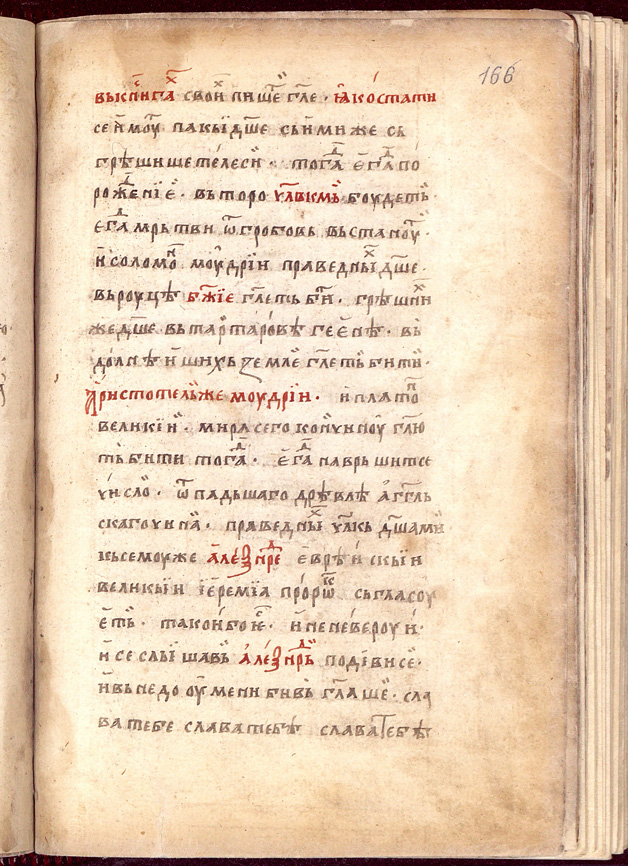 166
вькнигⷯа свои пишеть гл҃е · ꙗкѡ стати
се ймоу̑ пакыдш҃е сь ймиже сь
грѣшише телеси · тогⷣа егⷣа по
рождение · въторо чл҃вкмь боудеть ·
егⷣа мрьтви ѿ гробовь вьстаноуть ·
й соломоⷩ моудрїи праведныⷯ дш҃е ·
вьроуцѣ бж҃їе гл҃еть бити · грѣшниⷯ
же дш҃е вь тартаровѣ геенѣ · вь
долнѣйшихь земле гл҃еть бити ·
Аристотель же моудрїи · и платоⷩ
великїи · мира сего кончиноу гл҃ю
ть бити тогⷣа · егⷣа наврьшит се
число · ѿпадьшаго дрѣвлѣ агг҃ль
скаго чина · праведныⷯ чл҃кь дш҃ами
кьсемоу же алеѯнⷣре еврѣйскыи
великыи їеремїа пророⷦ сьгласоу
еть · такой бою · й не невероуй ·
й се слышавь алеѯнⷣрь подївисе ·
й вь недооумени бивь гл҃аше · сла
ва тебе слава тебѣ слава тебѣ